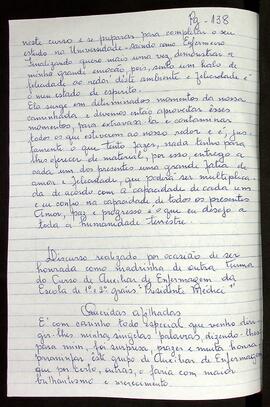 Pg - 138
neste curso e se preparar para completar o seu
estudo na Universidade saindo como Enfermeiro
Finalizando quero mais uma vez demonstrar a
minha grande emoção, pois, sinto um halo de
felicidade ao redor deste ambiente e felicidade é
o meu estado de espirito.
Ela surge em determinados momentos da nossa
caminhada e devemos então aproveitar esses
momentos, para extravasar-la e contaminar
todos os que estiverem ao nosso redor e é, jus-
tamente o que tento fazer, nada tenho para
lhe oferecer de material, por isso, entrego a
cada um dos presentes uma grande fatia de
amor e felicidade, que poderá ser multiplica-
da de acordo com a capacidade de cada um
e eu confio na capacidade de todos os presentes
Amor, paz e progresso é o que eu desejo a
toda a humanidade terrestre.
Discurso realizado por ocasião de ser
honrada como madrinha de outra turma
do Curso de Auxiliar de Enfermagem da
Escola de 1º e 2º graus "Presidente Médice"
Queridas afilhadas
É com carinho todo especial que venho diri-
gir-lhes minhas singelas palavras dizendo-lhes
para mim, foi surpresa, prazer e muita honra
paraninfar este grupo de Auxiliar de Enfermagem
que por certo, outras, o faria com maior
brilhantismo e merecimento.